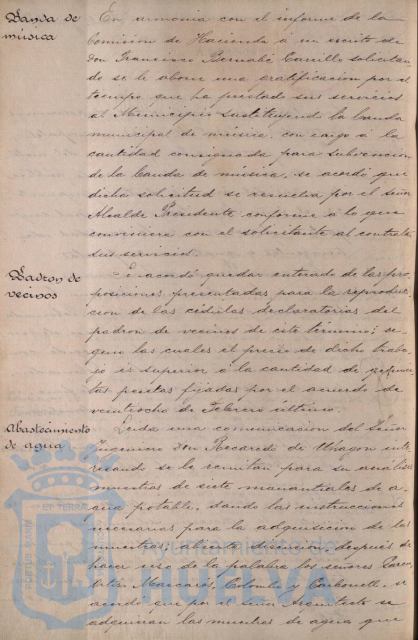 Banda de
música
En armonia con el informe de la
Comision de Hacienda á un escrito de
Don Francisco Bernabé Carrillo solicitan
do se le abone una gratificacion por el
tiempo que ha prestado sus servicios
al Municipio sustituyendo la banda
municipal de música, con cargo á la
cantidad consignada para subvencion
de la banda de música, se acordó que
dicha solicitud se resuelva por el Señor
Alcalde Presidente conforme á lo que
conviniera con el solicitante al contratar
sus servicios.
Padron de
vecinos
Se acordó quedar enterado de las pro
posiciones presentadas para la reproduc
cion de las cédulas declaratorias del
padron de vecinos de este término; se
gun las cuales el precio de dicho traba
jo es superior á la cantidad de
tas pesetas fijadas por el acuerdo de
veintiocho de Febrero último.
Abastecimiento
de agua
Leida una comunicacion del Señor
Ingeniero Don Recaredo de Uhagon inte
resando se le remitan para su analisis
muestras de siete manantiales de a
gua potable, dando las instrucciones
necesarias para la adquisicion de las
muestras; abierta discusion, despues de
hacer uso de la palabra los señores Garci
Mascarós, Colombo y Carbonell, se
acordó que por el Señor Arquitecto se
adquieran las muestras de agua que
PORTUS MARIS
ET TERRÆ
CUSTODIA
Ayuntamiento de
HUELVA